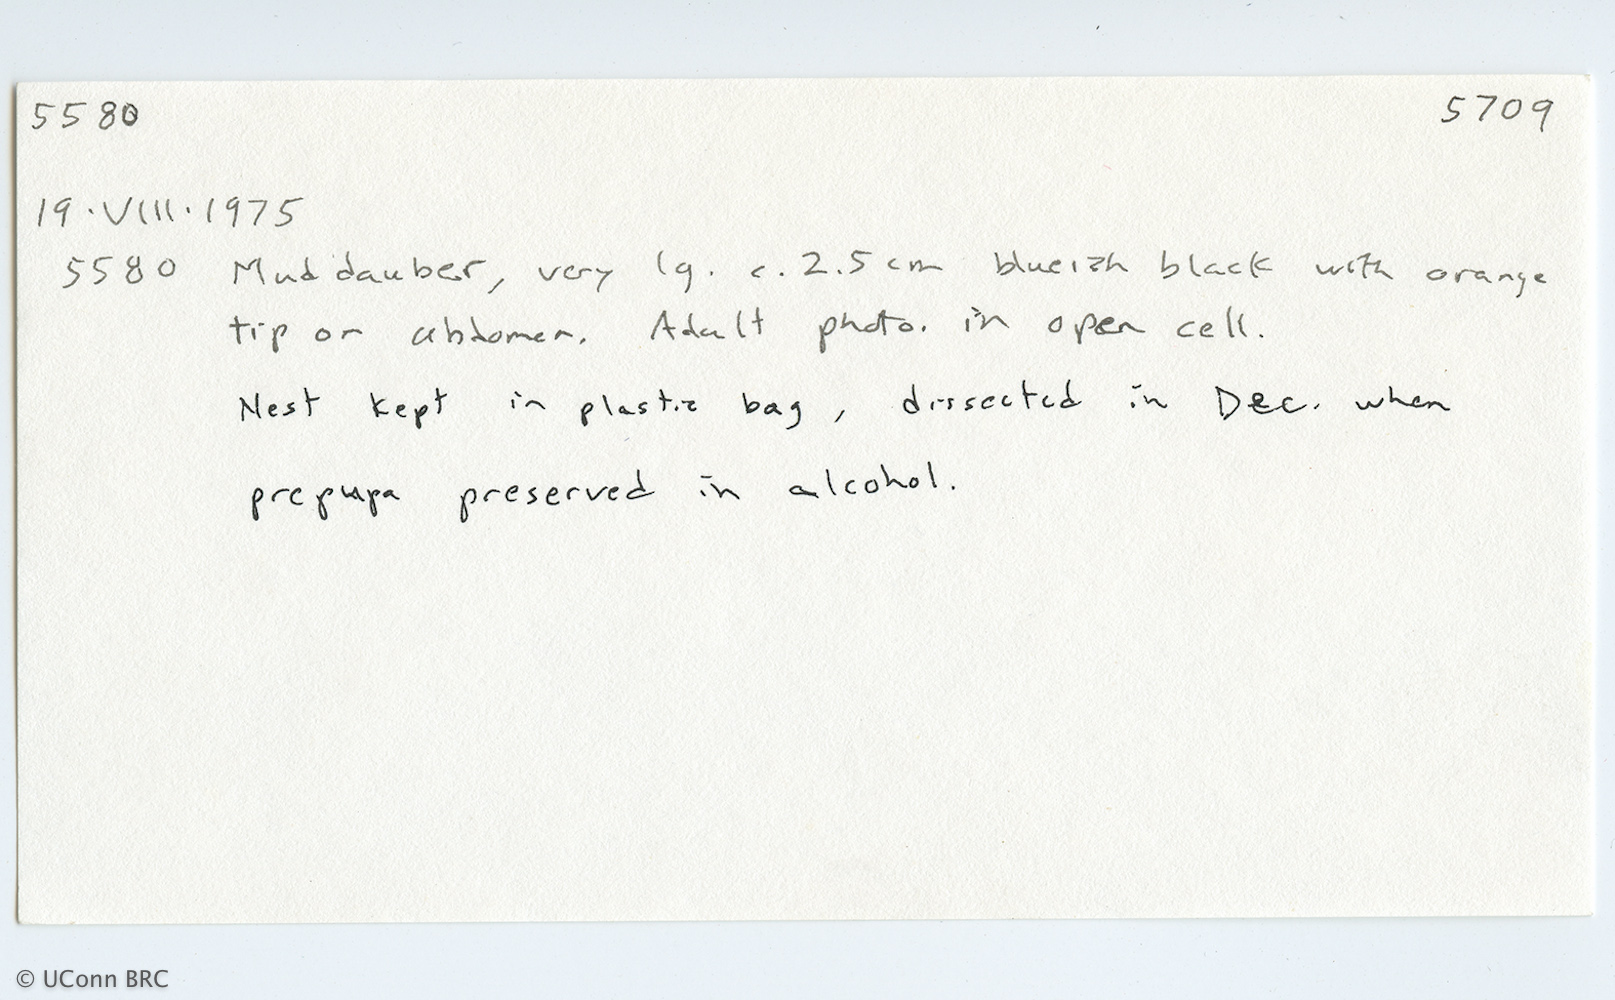 5580 5709
19·VIII·1975
5580 Mud dauber, very lg. c. 2.5 cm blueish black with orange
tip on abdomen. Adult photo. in open cell.
Nest kept in plastic bag, dissected in Dec. when
prepupa preserved in alcohol.
© UConn BRC